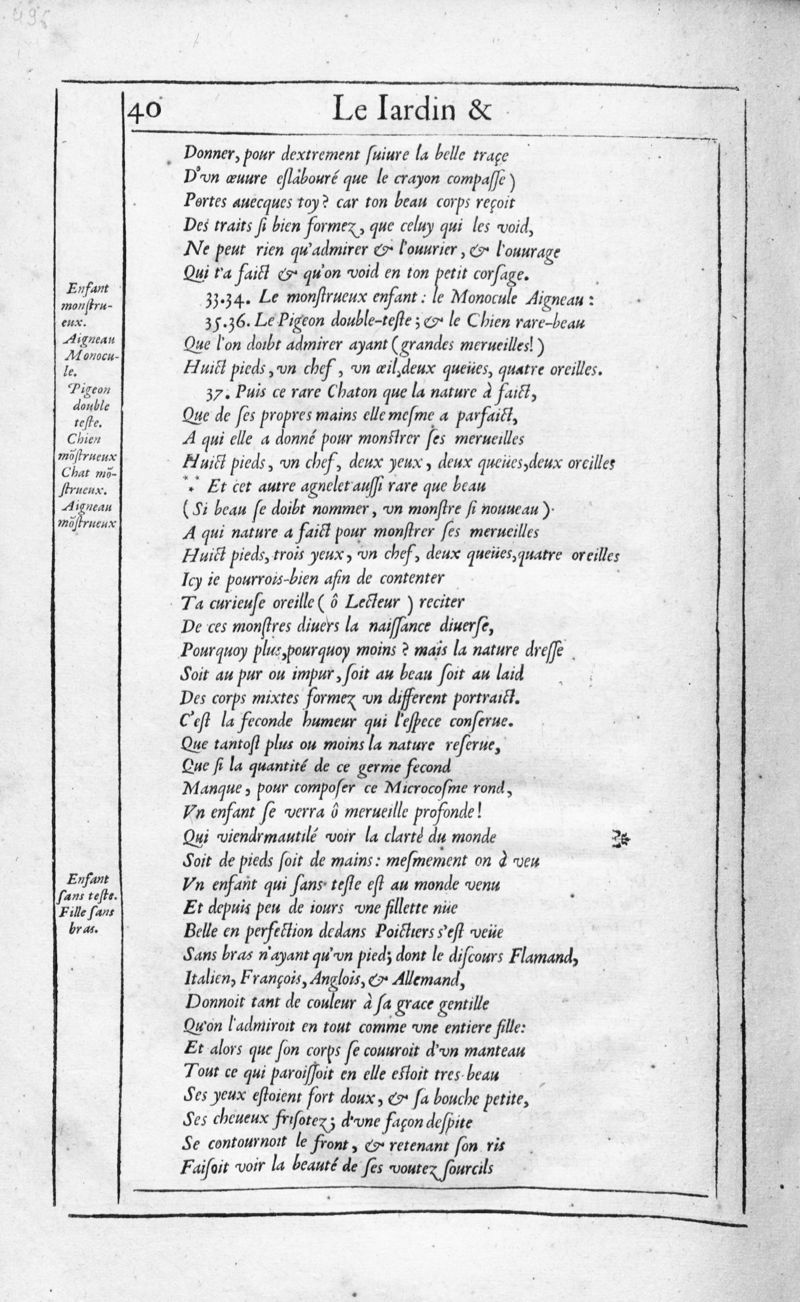 40
Le Iardin &
Donner, pour dextrement ſuiure la belle traçe
D'vn œuure eſlàbouré que le crayon compaſſe)
Portes auecques toy? car ton beau corps reçoit
Des traits ſi bien formez, que celuy qui les void,
Ne peut rien qu'admirer & l'ouurier, & l'ouurage
Qui t'a faict & qu'on void en ton petit corſage.
33.34. Le monſtrueux enfant: le Monocule Aigneau:
35.36. Le Pigeon double-teſte; & le Chien rare-beau
Que l'on doibt admirer ayant (grandes merueilles!)
Huict pieds, vn chef, vn œil, deux queües, quatre oreilles.
37. Puis ce rare Chaton que la nature à faict,
Que de ſes propres mains elle meſme a parfaict,
A qui elle a donné pour monſtrer ſes merueilles
Huict pieds, vn chef, deux yeux, deux queües, deux oreilles
*.* Et cet autre agnelet auſſi rare que beau
(Si beau ſe doibt nommer, vn monſtre ſi nouueau)
A qui nature a faict pour monſtrer ſes merueilles
Huict pieds, trois yeux, vn chef, deux queües, quatre oreilles
Icy ie pourrois-bien afin de contenter
Ta curieuſe oreille (ô Lecteur) reciter
De ces monſtres diuers la naiſſance diuerſe,
Pourquoy plus, pourquoy moins? mais la nature dreſſe
Soit au pur ou impur, ſoit au beau ſoit au laid
Des corps mixtes formez vn different portraict.
C'eſt la feconde humeur qui l'eſpece conſerue.
Que tantoſt plus ou moins la nature reſerue,
Que ſi la quantité de ce germe fecond
Manque, pour compoſer ce Microcoſme rond,
Vn enfant ſe verra ô merueille profonde!
Qui viendrmautilé voir la clarté du monde
Soit de pieds ſoit de mains: meſmement on à veu
Vn enfant qui ſans teſte eſt au monde venu
Et depuis peu de iours vne fillette nüe
Belle en perfection dedans Poictiers s'eſt veüe
Sans bras n'ayant qu'vn pied; dont le diſcours Flamand,
Italien, François, Anglois, & Allemand,
Donnoit tant de couleur à ſa grace gentille
Qu'on l'admiroit en tout comme vne entiere fille:
Et alors que ſon corps ſe couuroit d'vn manteau
Tout ce qui paroiſſoit en elle eſtoit tres beau
Ses yeux eſtoient fort doux, & ſa bouche petite,
Ses cheueux friſotez; d'vne façon deſpite
Se contournoit le front, & retenant ſon ris
Faiſoit voir la beauté de ſes voutez ſourcils
Enfant
monſtru-
eux.
Aigneau
Monocu-
le.
Pigeon
double
teſte.
Chien
mõſtrueux
Chat mõ-
ſtrueux.
Aigneau
mõſtrueux
Enfant
ſans teſte.
Fille ſans
bras.